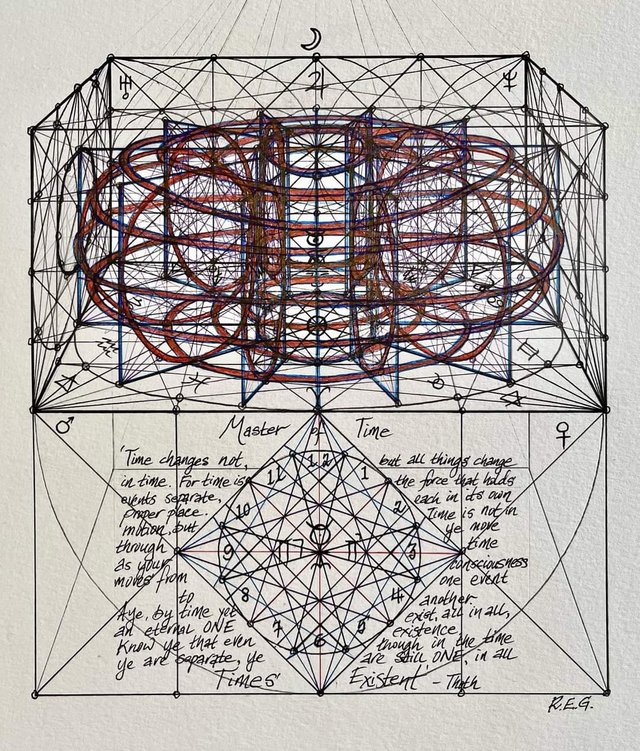 ☽
♅ ♃ ♆
♂ ♀
Master of Time
'Time changes not, but all things change
in time. For time is the force that holds
events separate, each in its own
proper place. Time is not in
motion, but ye move
through time
as your consciousness
moves from one event
to another
Aye, by time yet exist, all in all,
an eternal ONE existence.
Know ye that even though in the time
ye are separate, ye are still ONE, in all
Times' Existent - Thoth
12
1
2
3
4
5
6
7
8
9
10
11
R.E.G.